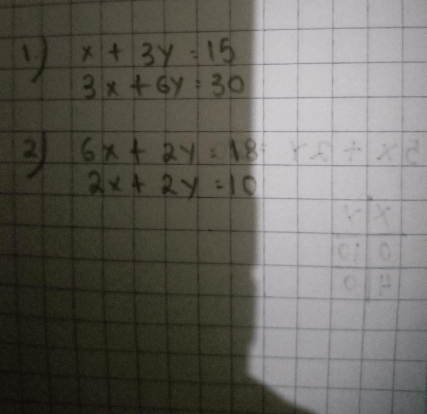 1.) x + 3y = 15
3x + 6y = 30
2) 6x + 2y = 18
2x + 2y = 10